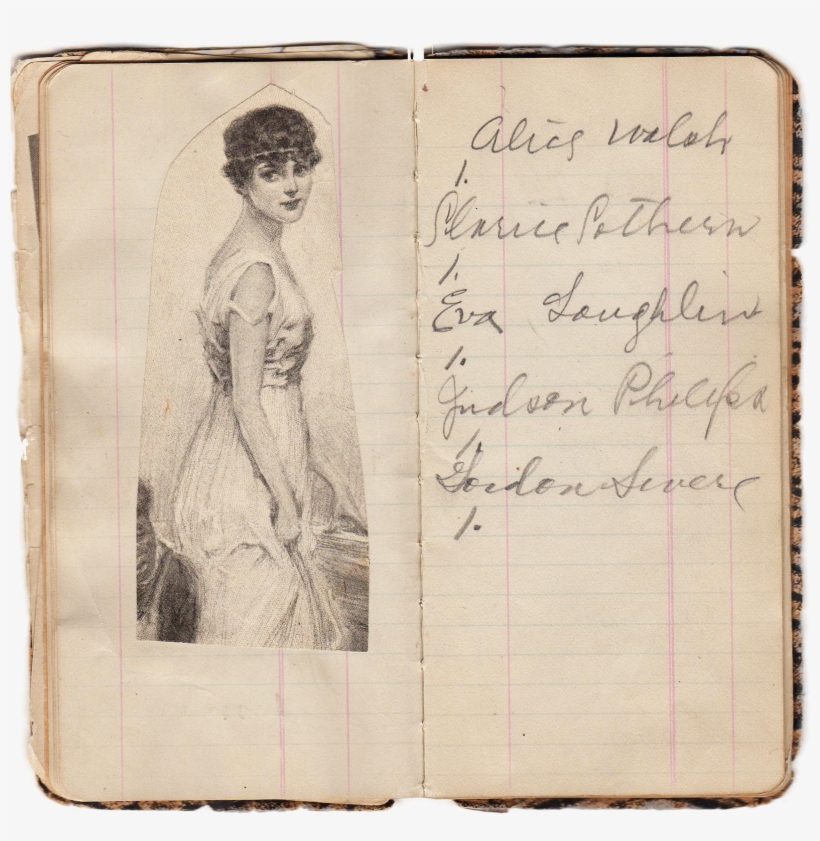 Alice Walsh
1.
Clarice Sothern
1.
Eva Loughlin
1.
Judson Phelips
1.
Gordon Severe
1.